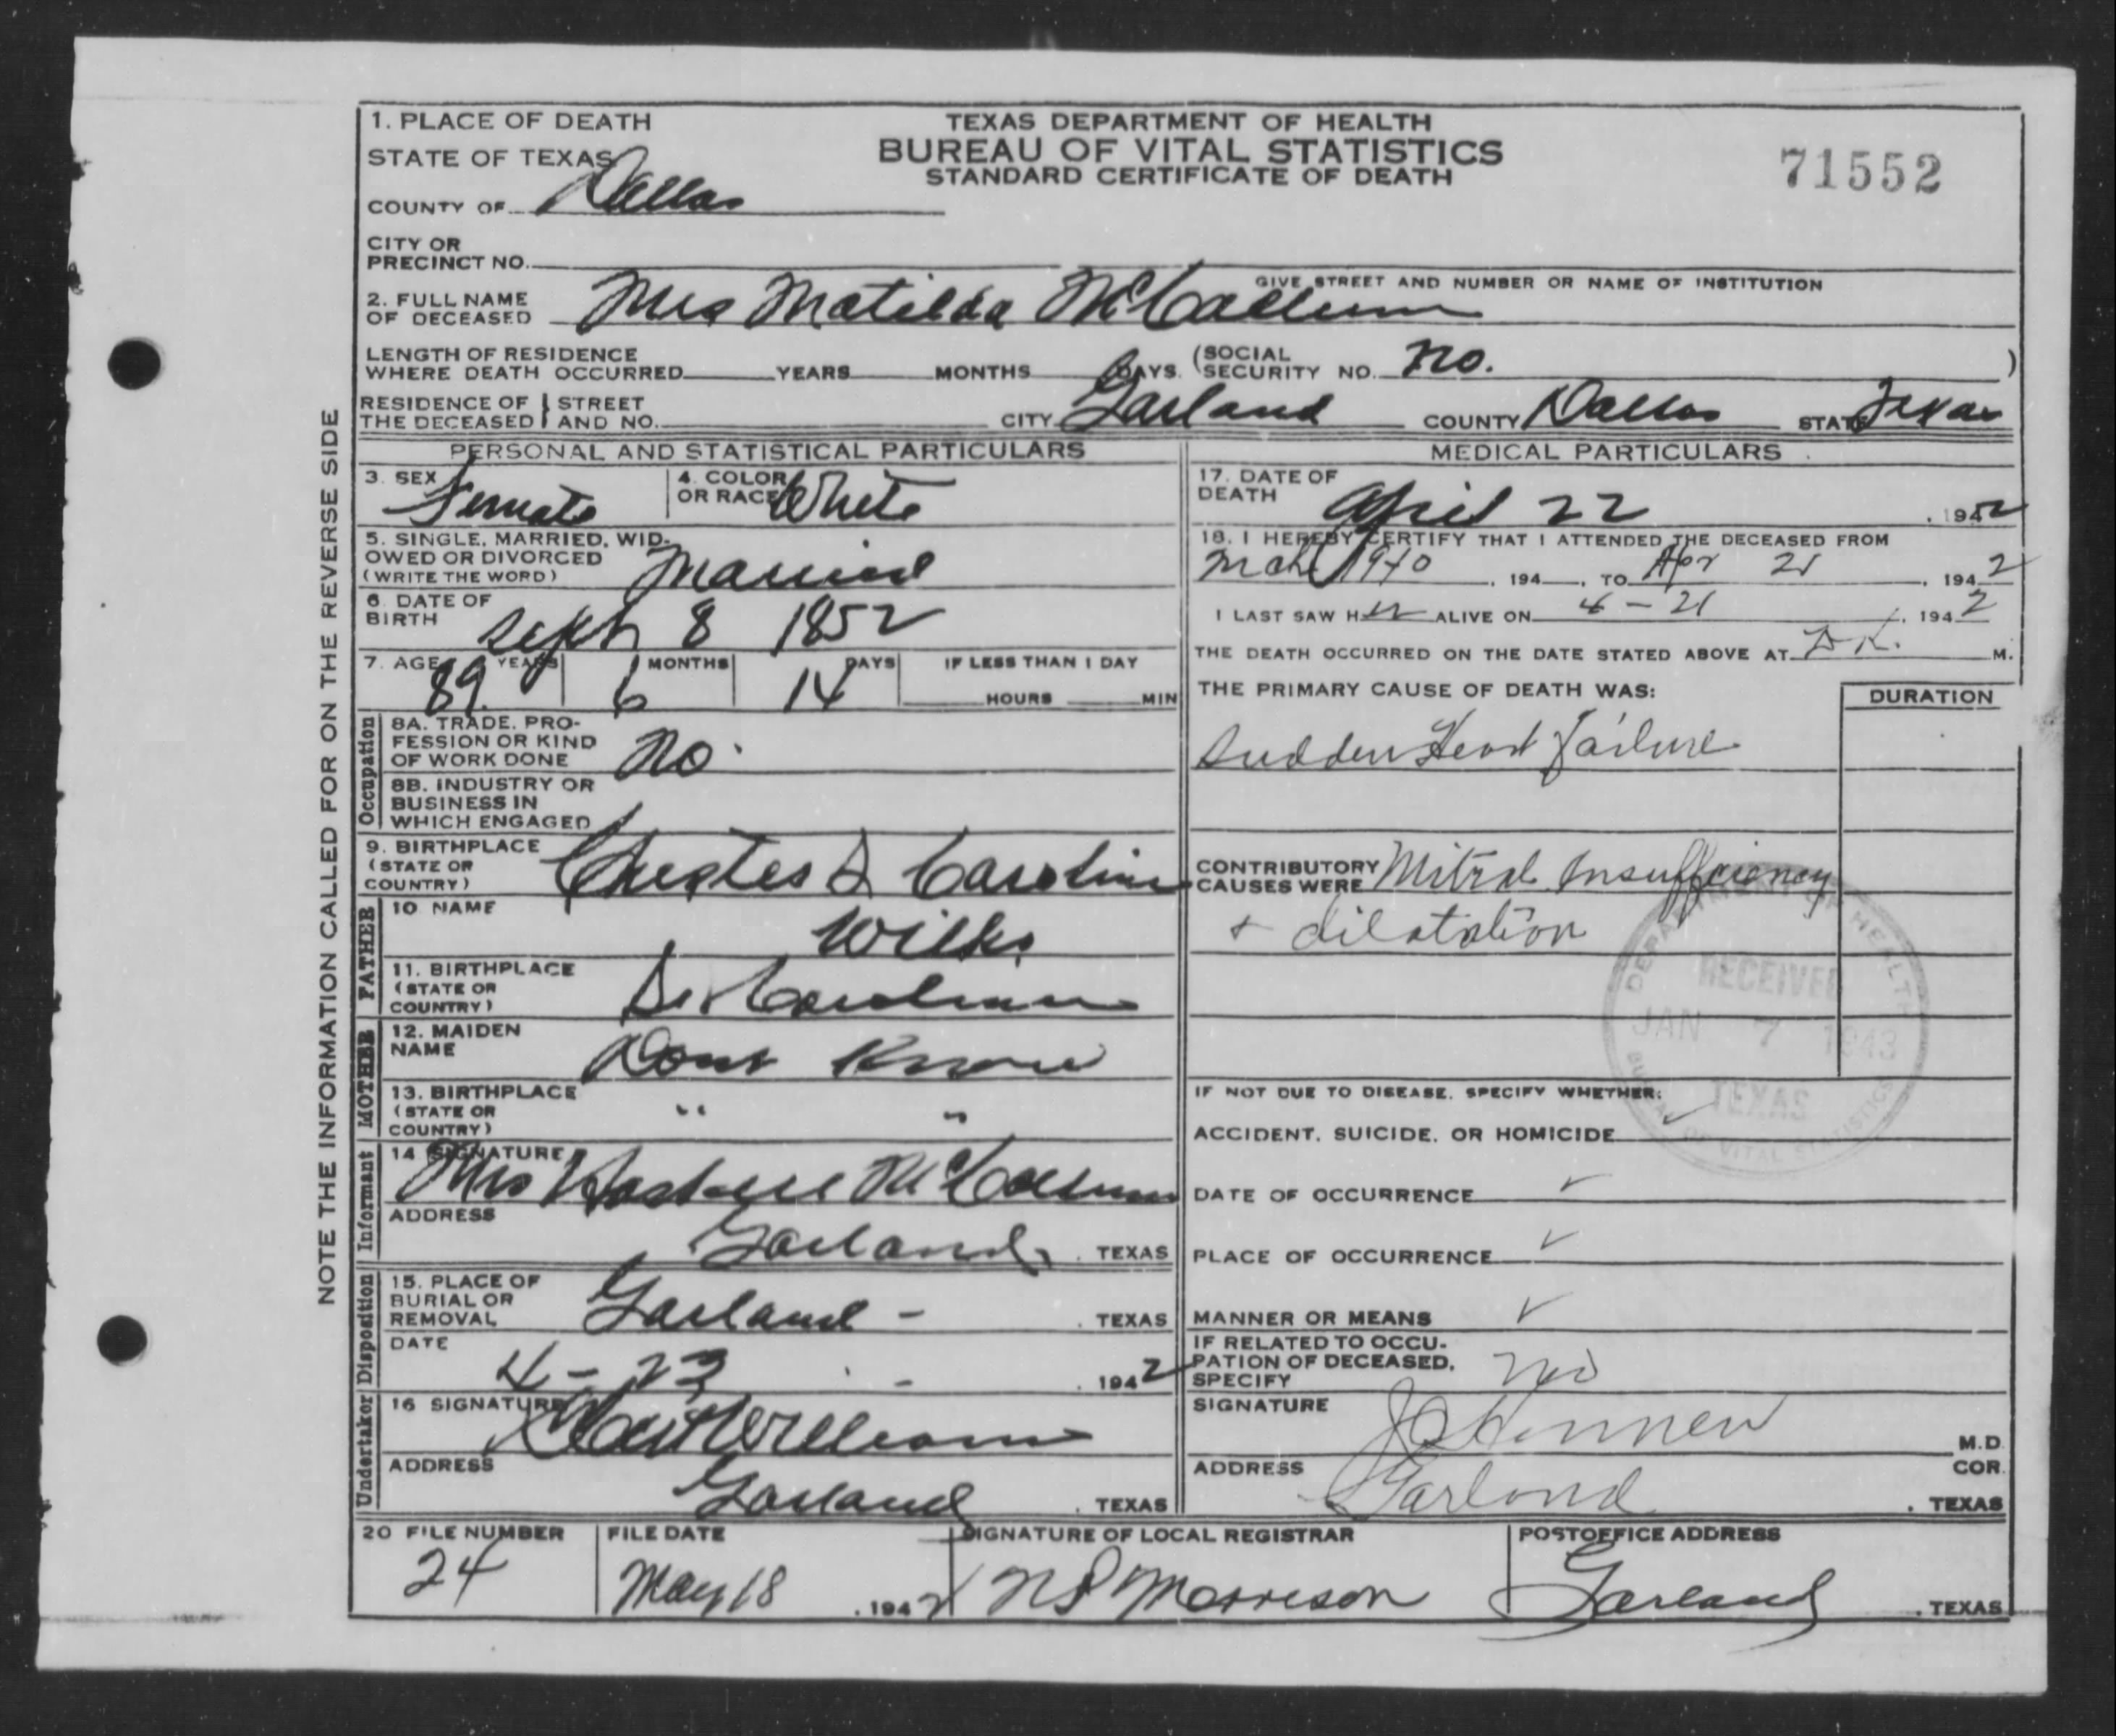 1. PLACE OF DEATH
STATE OF TEXAS
COUNTY OF Dallas
TEXAS DEPARTMENT OF HEALTH
BUREAU OF VITAL STATISTICS
STANDARD CERTIFICATE OF DEATH
71552
CITY OR
PRECINCT NO.
GIVE STREET AND NUMBER OR NAME OF INSTITUTION
2. FULL NAME
OF DECEASED Mrs Matilda McCallum
LENGTH OF RESIDENCE
WHERE DEATH OCCURRED YEARS MONTHS DAYS. (SOCIAL SECURITY NO. no. )
RESIDENCE OF THE DECEASED } STREET AND NO. CITY Garland COUNTY Dallas STATE Texas
NOTE THE INFORMATION CALLED FOR ON THE REVERSE SIDE
PERSONAL AND STATISTICAL PARTICULARS
3. SEX Female
4. COLOR OR RACE White
5. SINGLE, MARRIED, WID-
OWED OR DIVORCED
(WRITE THE WORD) Married
6. DATE OF
BIRTH Sept 8 1852
7. AGE 89 YEARS 6 MONTHS 14 DAYS IF LESS THAN 1 DAY
HOURS MIN
Occupation
8A. TRADE, PRO-
FESSION OR KIND
OF WORK DONE No
8B. INDUSTRY OR
BUSINESS IN
WHICH ENGAGED
9. BIRTHPLACE
(STATE OR
COUNTRY) Chester S Carolina
FATHER
10 NAME Wilks
11. BIRTHPLACE
(STATE OR
COUNTRY) So Carolina
MOTHER
12. MAIDEN
NAME Dont Know
13. BIRTHPLACE
(STATE OR
COUNTRY) " "
Informant
14 SIGNATURE
Mrs McCallum
ADDRESS
Garland, . TEXAS
Disposition
15. PLACE OF
BURIAL OR
REMOVAL Garland - . TEXAS
DATE
4 - 23 - . 1942
Undertaker
16 SIGNATURE
Williams
ADDRESS
Garland . TEXAS
MEDICAL PARTICULARS
17. DATE OF
DEATH April 22 . 1942
18. I HEREBY CERTIFY THAT I ATTENDED THE DECEASED FROM
Mch 1940 , 194 , TO Apr 21 , 1942
I LAST SAW HER ALIVE ON 4 - 21 , 1942
THE DEATH OCCURRED ON THE DATE STATED ABOVE AT D.K. M.
THE PRIMARY CAUSE OF DEATH WAS:
DURATION
Sudden Heart Failure
CONTRIBUTORY
CAUSES WERE Mitral Insufficiency
+ dilatation
DEPARTMENT OF HEALTH
RECEIVED
JAN 7 1943
TEXAS
BUREAU OF VITAL STATISTICS
IF NOT DUE TO DISEASE, SPECIFY WHETHER:
ACCIDENT, SUICIDE, OR HOMICIDE ✓
DATE OF OCCURRENCE ✓
PLACE OF OCCURRENCE ✓
MANNER OR MEANS ✓
IF RELATED TO OCCU-
PATION OF DECEASED,
SPECIFY No
SIGNATURE
M.D.
ADDRESS Garland COR.
. TEXAS
20 FILE NUMBER
24
FILE DATE
May 18 . 1942
SIGNATURE OF LOCAL REGISTRAR
Morrison
POSTOFFICE ADDRESS
Garland . TEXAS